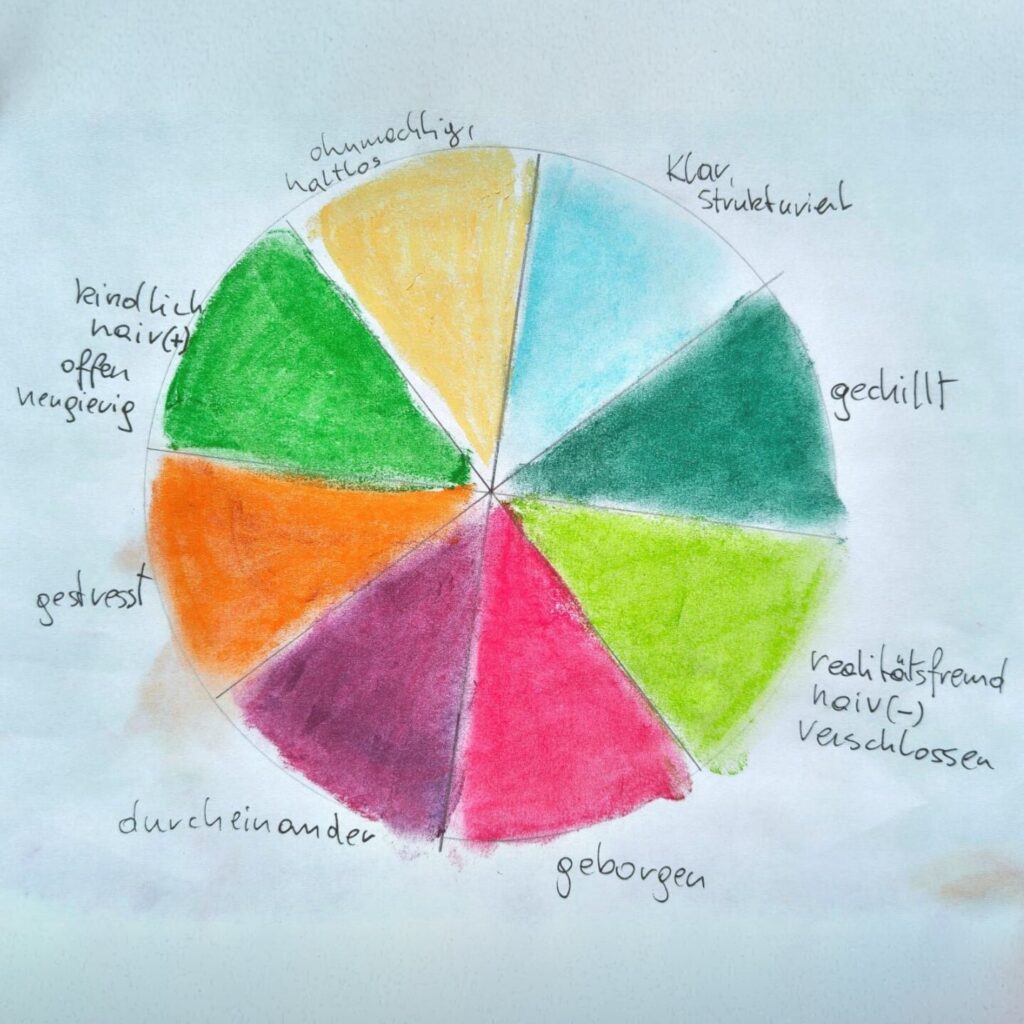 ohnmächtig,
haltlos
Klar,
strukturiert
gechillt
realitätsfremd
naiv(-)
verschlossen
geborgen
durcheinander
gestresst
kindlich
naiv(+)
offen
neugierig